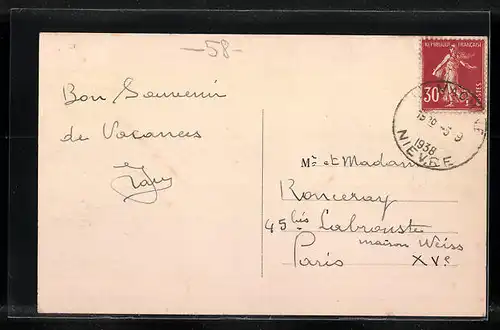 —58—
RÉPUBLIQUE FRANÇAISE
30c
POSTES
1938
NIEVRE
Bon Souvenir
de Vacances
Mr et Madame
Ronceray
45 bis Labrouste
maison Weiss
Paris XVe